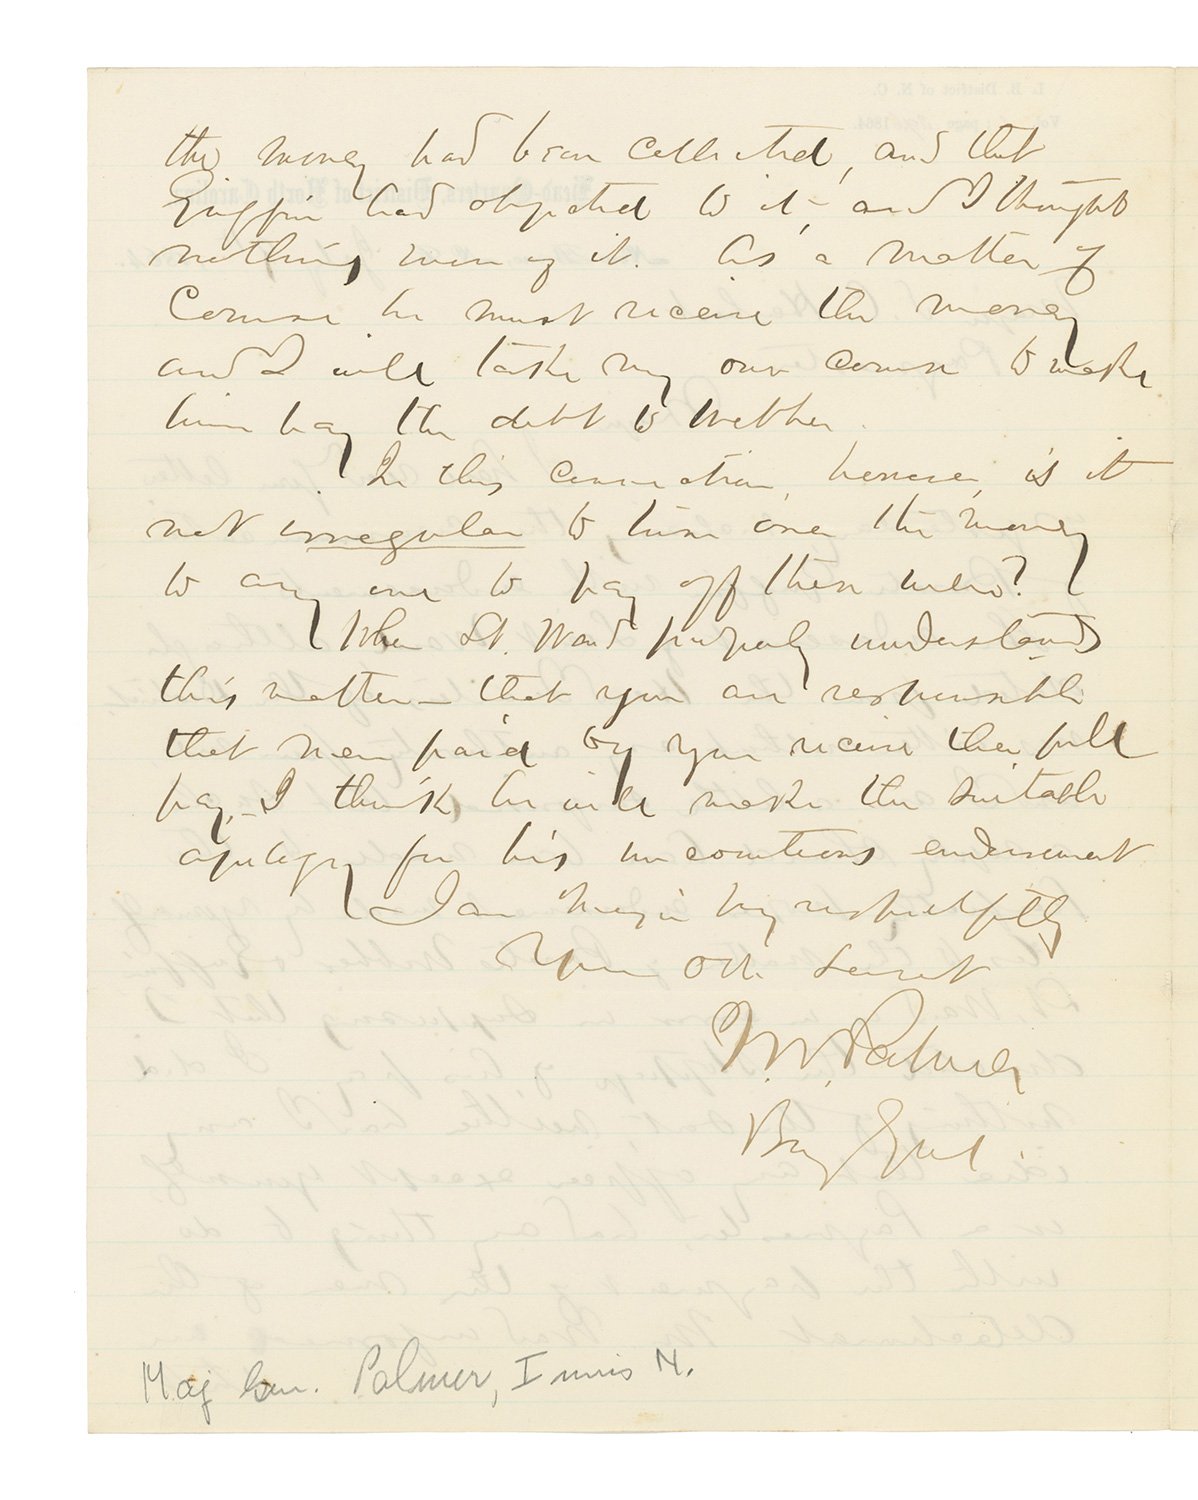 the money had been collected, and that
Griffin had objected to it – and I thought
nothing more of it. As a matter of
Course he must receive the money
and I will take my own course to make
him pay the debt to Webber.
In this connection, however, is it
not irregular to turn over the money
to any one to pay off these men?
When Lt. Ward properly understands
this matter – that you are responsible
that men paid by you receive their full
pay, – I think he will make the suitable
apology for his uncourteous endorsement
I am Major very respectfully
Your Obt. Servt
I. N. Palmer
Brig Genl
Maj Gen. Palmer, Innis N.